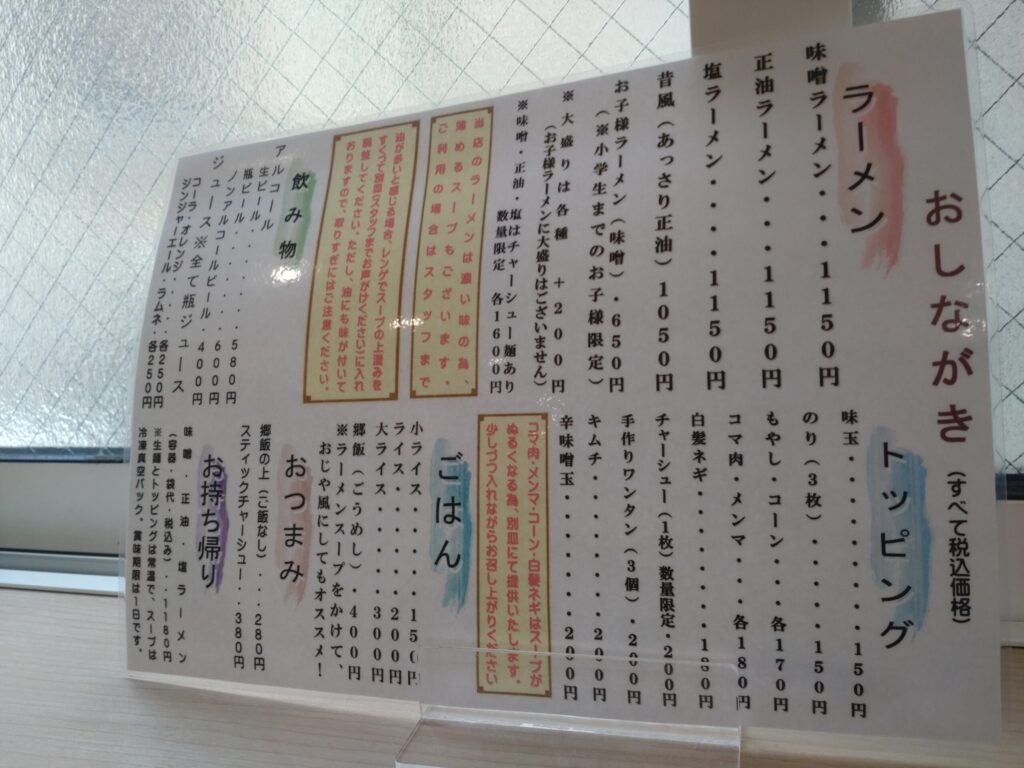 おしながき
(すべて税込価格)
ラーメン
味噌ラーメン・・・1150円
正油ラーメン・・・1150円
塩ラーメン・・・・1150円
昔風(あっさり正油) 1050円
お子様ラーメン(味噌)・650円
(※小学生までのお子様限定)
※大盛りは各種 +200円
(お子様ラーメンに大盛りはございません)
※味噌・正油・塩はチャーシュー麺あり
数量限定 各1600円
当店のラーメンは濃い味の為、
薄めるスープもございます。
ご利用の場合はスタッフまで
油が多いと感じる場合、レンゲでスープの上澄みを
すくって別皿(スタッフまでお声がけください)に入れ
調整してください。ただし、油にも味が付いて
おりますので、取りすぎにはご注意ください。
飲み物
アルコール
生ビール・・・・・・580円
瓶ビール・・・・・・600円
ノンアルコールビール・400円
ジュース ※全て瓶ジュース
コーラ・オレンジ・・・各250円
ジンジャーエール・ラムネ・各250円
トッピング
味玉・・・・・・・・・150円
のり(3枚)・・・・・・150円
もやし・コーン・・・各170円
コマ肉・メンマ・・・各180円
白髪ネギ・・・・・・・180円
チャーシュー(1枚)数量限定・200円
手作りワンタン(3個)・・200円
キムチ・・・・・・・・200円
辛味噌玉・・・・・・・200円
コマ肉・メンマ・コーン・白髪ネギはスープが
ぬるくなる為、別皿にて提供いたします。
少しづつ入れながらお召し上がりください
ごはん
小ライス・・・・・150円
ライス・・・・・・200円
大ライス・・・・・300円
郷飯(ごうめし)・・400円
※ラーメンスープをかけて、
おじや風にしてもオススメ!
おつまみ
郷飯の上(ご飯なし)・・・280円
スティックチャーシュー・・380円
お持ち帰り
味噌・正油・塩ラーメン
(容器・袋代・税込み)・・1180円
※生麺とトッピングは常温で、スープは
冷凍真空パック。賞味期限は1日です。